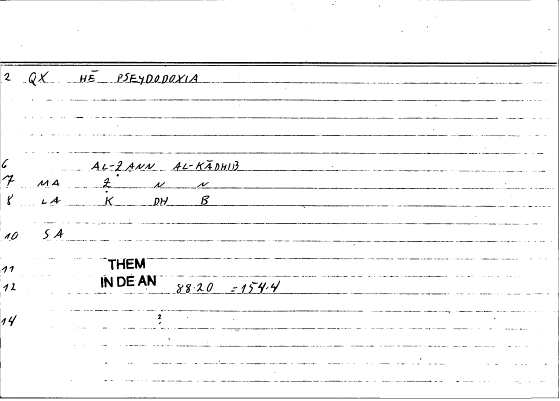 2 QX HĒ PSEYDODOXIA
6 AL-ẒANN AL-KĀDHIB
7 MA Ẓ N N
8 LA K DH B
10 SA
11 THEM
12 IN DE AN 88.20 =154.4
14 ?